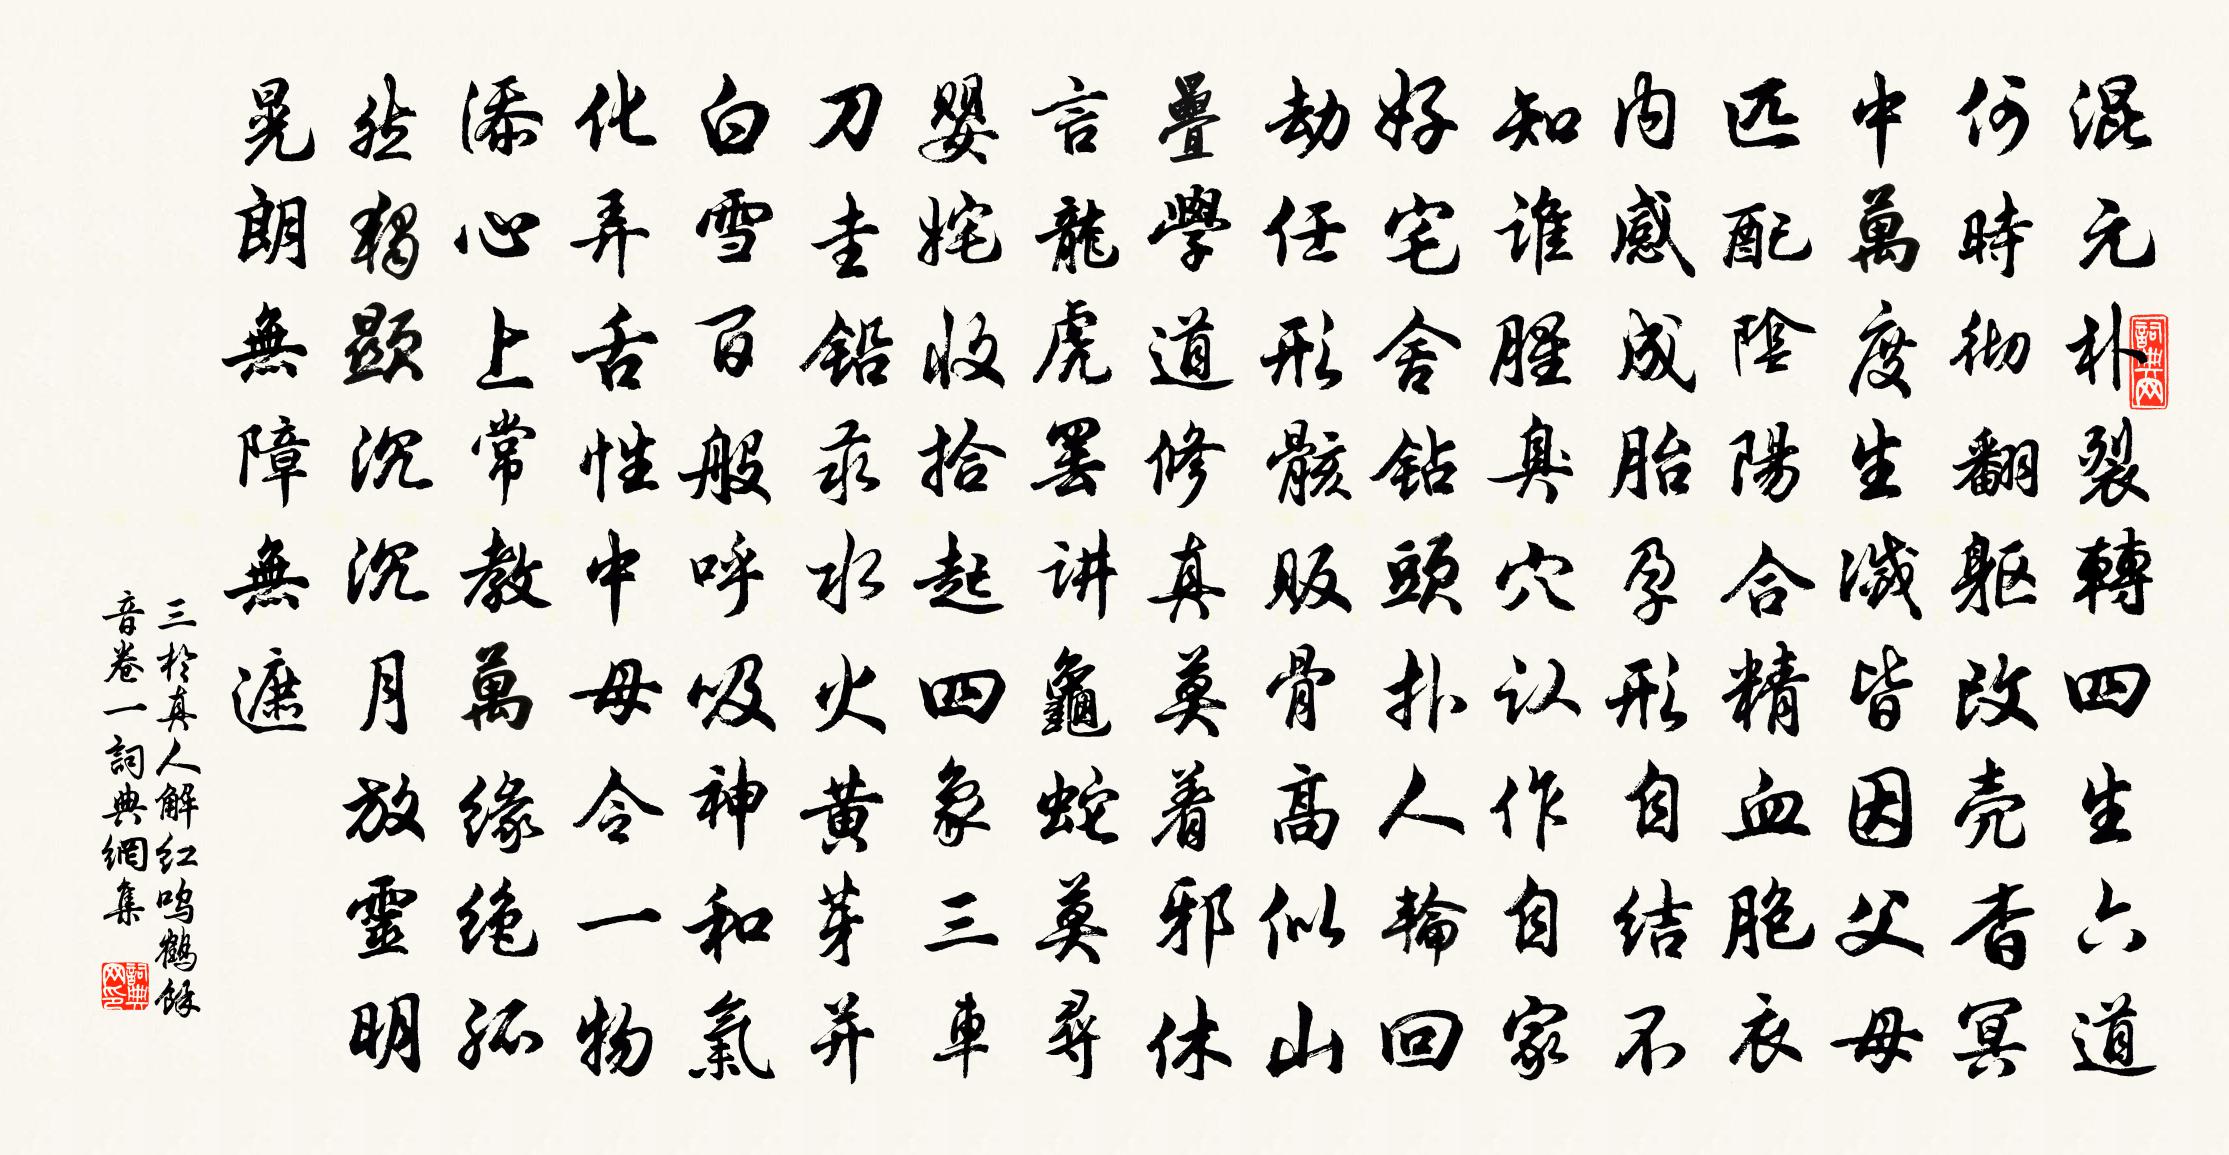 混元朴裂轉四生六道
何時彻翻躯改壳杳冥
中萬度生滅皆因父母
匹配陰陽合精血胞衣
内感成胎孕形自结不
知谁腥臭穴认作自家
好宅舍钻頭扑人輪回
劫任形骸販骨高似山
疊學道修真莫着邪休
言龍虎罢讲龜蛇莫尋
嬰姹收拾起四象三車
刀圭铅汞水火黄芽并
白雪百般呼吸神和氣
化弄舌性中母令一物
添心上常教萬缘绝孤
然獨顕沉沉月放靈明
晃朗無障無遮
三於真人解红鸣鶴餘
音卷一詞典網集
詞典网
詞典网印